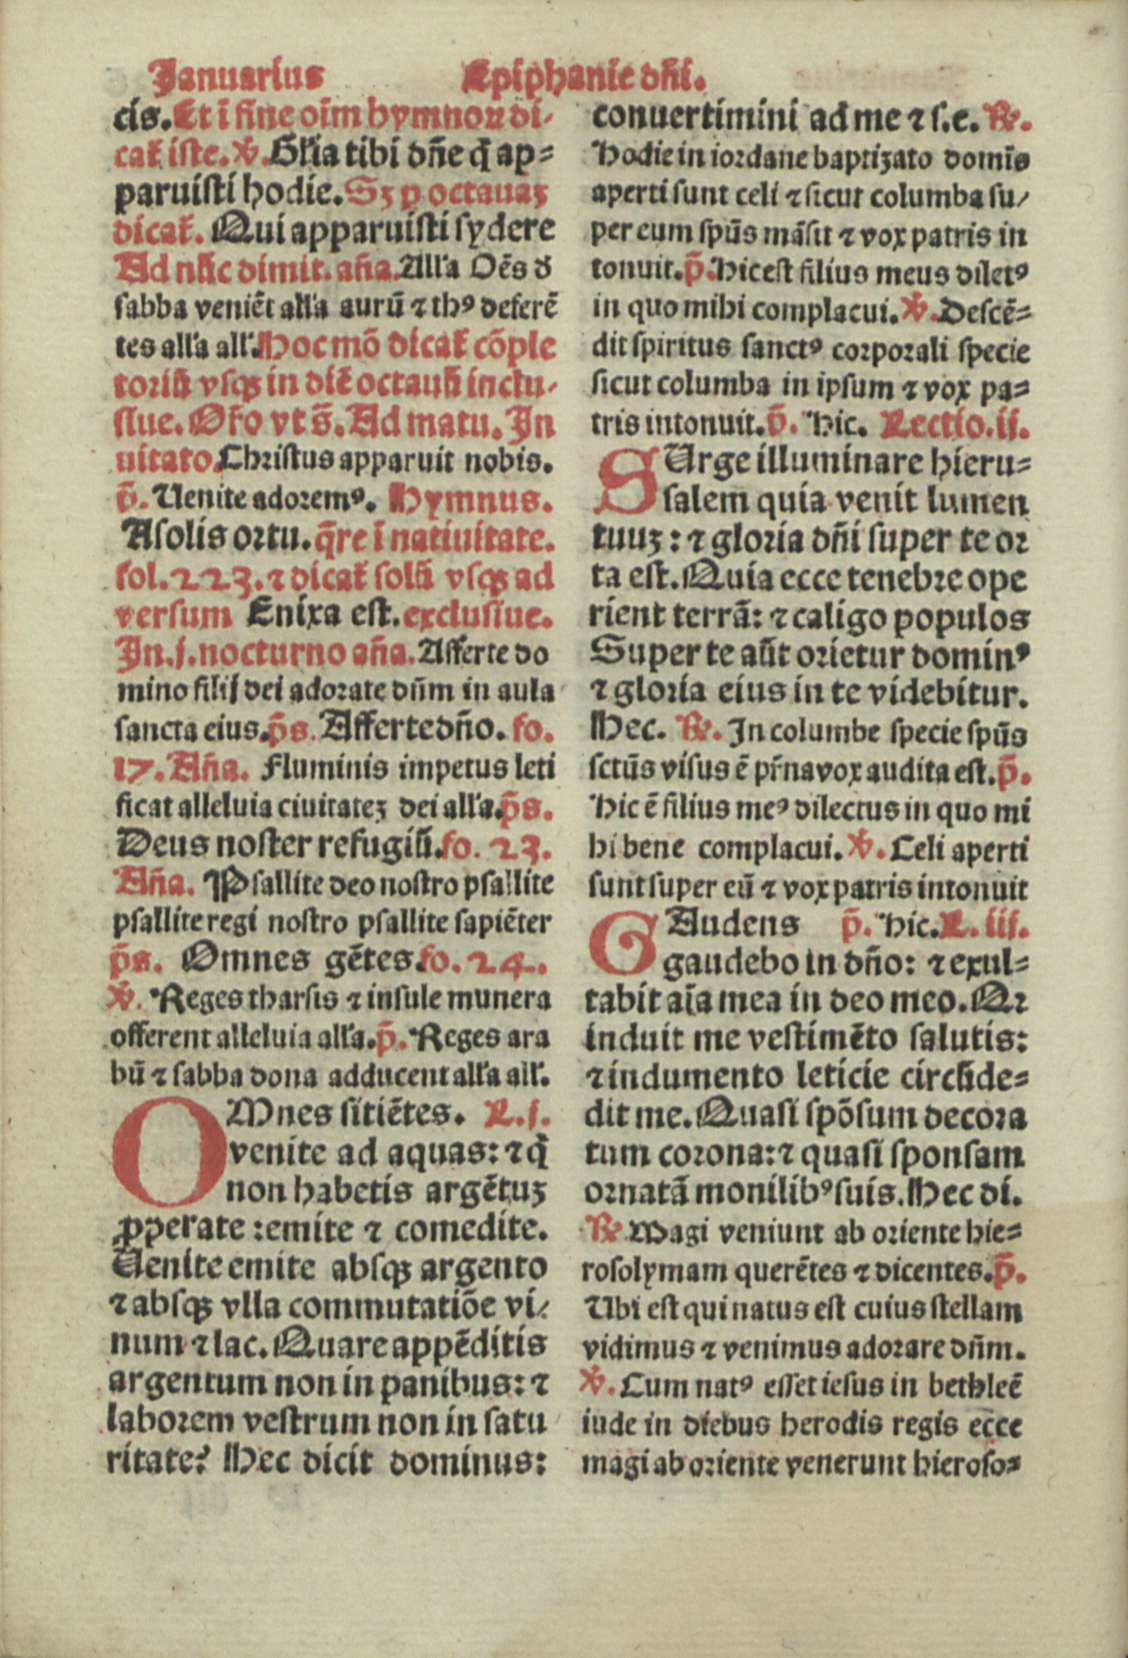 Januarius Epiphanie dñi.
cis. Et ī fine oīm hymnoꝝ di⸗
cat̃ iste. ℣. Glīa tibi dñe q̄ ap⸗
paruisti hodie. Sꝫ p octauaꝫ
dicat̃. Qui apparuisti sydere
Ad nūc dimit. aña. Alľa Oēs đ
sabba veniēt alľa aurū ⁊ thꝰ deferē
tes alľa alľ. Hoc mō dicat̃ cōple
toriū vsqꝫ in diē octauā inclu⸗
siue. Oŕo vt s̄. Ad matu. In
uitato. Christus apparuit nobis.
p̄. Uenite adoremꝰ. Hymnus.
A solis ortu. q̄re ī natiuitate.
fol. 223. ⁊ dicat̃ solū vsqꝫ ad
versum Enixa est. exclusiue.
In .j. nocturno aña. Afferte do
mino filij dei adorate dūm in aula
sancta eius. p̄s. Afferte dño. fo.
17. Aña. Fluminis impetus leti
ficat alleluia ciuitateꝫ dei alľa. p̄s.
Deus noster refugiū. fo. 23.
Aña. Psallite deo nostro psallite
psallite regi nostro psallite sapiēter
p̄s. Omnes gētes. fo. 24.
℣. Reges tharsis ⁊ insule munera
offerent alleluia alľa. p̄. Reges ara
bū ⁊ sabba dona adducent alľa alľ.
OMnes sitiētes. L. j.
venite ad aquas: ⁊ q̄
non habetis argētuꝫ
ꝓperate: emite ⁊ comedite.
Uenite emite absqꝫ argento
⁊ absqꝫ vlla commutatiōe vi⸗
num ⁊ lac. Quare appēditis
argentum non in panibus: ⁊
laborem vestrum non in satu
ritate? Hec dicit dominus:
conuertimini ad me ⁊ s. e. ℟.
Hodie in iordane baptizato domīo
aperti sunt celi ⁊ sicut columba su⸗
per eum spūs māsit ⁊ vox patris in
tonuit. p̄. Hic est filius meus diletꝰ
in quo mihi complacui. ℣. Descē⸗
dit spiritus sanctꝰ corporali specie
sicut columba in ipsum ⁊ vox pa⸗
tris intonuit. p̄. Hic. Lectio .ij.
SUrge illuminare hieru⸗
salem quia venit lumen
tuuꝫ: ⁊ gloria dñi super te or
ta est. Quia ecce tenebre ope
rient terrā: ⁊ caligo populos
Super te aūt orietur dominꝰ
⁊ gloria eius in te videbitur.
Hec. ℟. In columbe specie spūs
sctūs visus ē pr̄na vox audita est. p̄.
Hic ē filius meꝰ dilectus in quo mi
hi bene complacui. ℣. Celi aperti
sunt super eū ⁊ vox patris intonuit
GAudens p̄. Hic. L. iij.
gaudebo in dño: ⁊ exul⸗
tabit aīa mea in deo meo. Qr
induit me vestimēto salutis:
⁊ indumento leticie circūde⸗
dit me. Quasi spōsum decora
tum corona: ⁊ quasi sponsam
ornatā monilibꝰ suis. Hec di.
℟. Magi veniunt ab oriente hie⸗
rosolymam querētes ⁊ dicentes. p̄.
Ubi est qui natus est cuius stellam
vidimus ⁊ venimus adorare dūm.
℣. Cum natꝰ esset iesus in bethleē
iude in diebus herodis regis ecce
magi ab oriente venerunt hieroso⸗